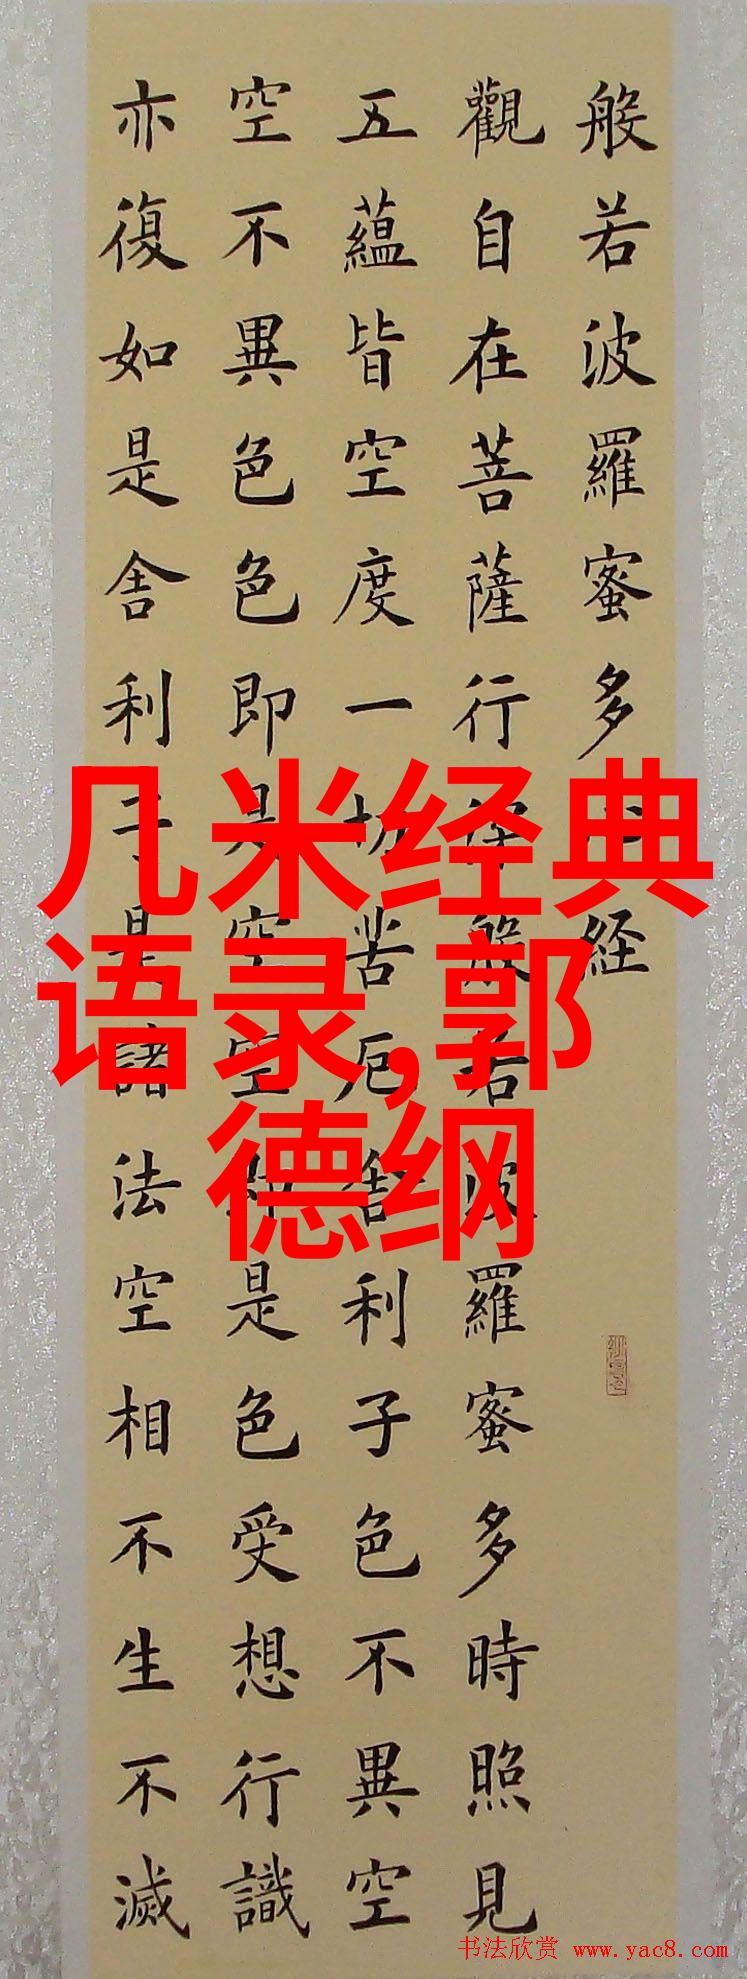 般若波羅蜜多心経
觀自在菩薩行深般若波羅蜜多時照見
五蘊皆空度一切苦厄舍利子色不異空
空不異色色即是空空即是色受想行識
亦復如是舍利子是諸法空相不生不滅
几米经典
语录,郭
德纲
书法欣赏 www.yac8.com